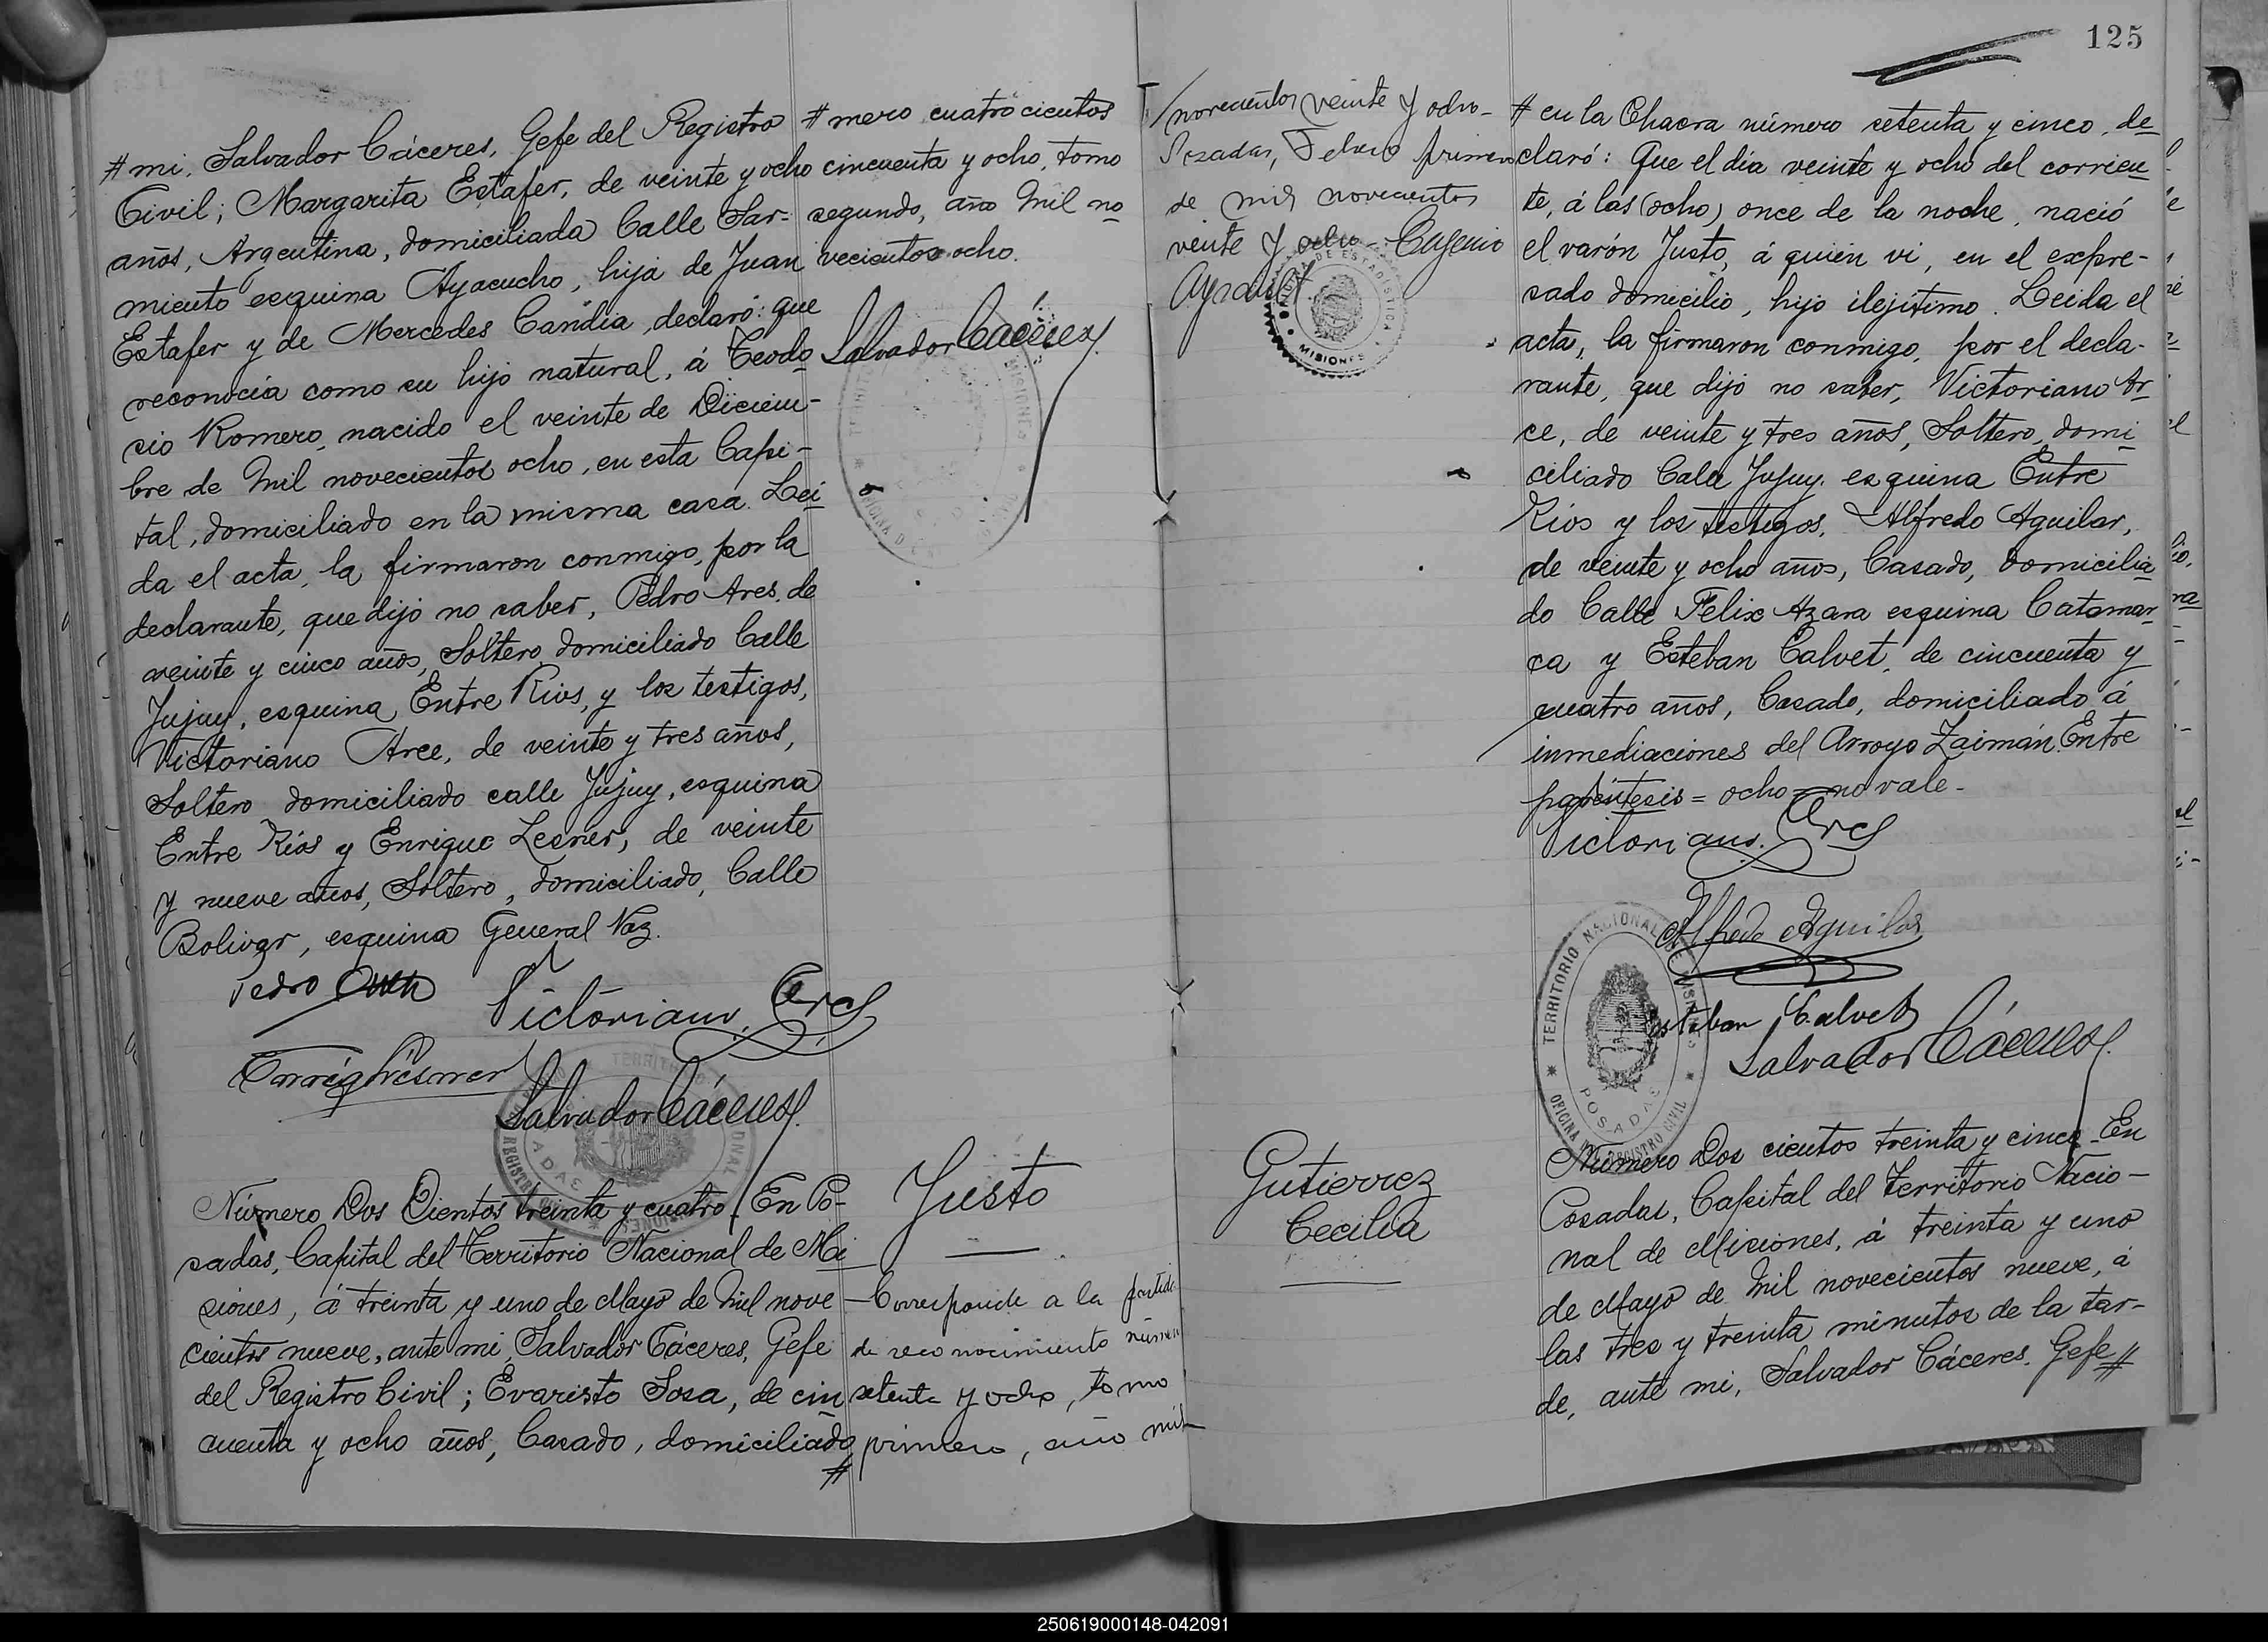 # mi, Salvador Cáceres, Gefe del Registro
Civil; Margarita Estafer, de veinte y ocho
años, Argentina, domiciliada Calle Sar=
miento esquina Ayacucho, hija de Juan
Estafer y de Mercedes Candia, declaró: que
reconocía como su hijo natural, á Teodo
sio Romero, nacido el veinte de Diciem-
bre de Mil novecientos ocho, en esta Capi-
tal, domiciliado en la misma casa. Lei
da el acta, la firmaron conmigo, por la
declarante, que dijo no saber, Pedro Ares, de
veinte y cinco años, Soltero, domiciliado Calle
Jujuy, esquina Entre Rios, y los testigos,
Victoriano Arce, de veinte y tres años,
Soltero domiciliado calle Jujuy, esquina
Entre Ríos y Enrique Lesner, de veinte
y nueve años, Soltero, domiciliado, Calle
Bolivar, esquina General Paz.
Pedro
Victoriano Arce
Salvador Cáceres
Número Dos Cientos treinta y cuatro. En Po-
sadas, Capital del Territorio Nacional de Mi
siones, á treinta y uno de Mayo de Mil nove
cientos nueve, ante mi, Salvador Cáceres, Gefe
del Registro Civil; Evaristo Sosa, de cin
cuenta y ocho años, Casado, domiciliado
#
# mero cuatrocientos
cincuenta y ocho, tomo
segundo, año Mil no
vecientos ocho.
Salvador Cáceres
Justo
Corresponde a la partida
de reconocimiento número
setenta y ocho, tomo
primero, año mil
/novecientos veinte y ocho-
Posadas, Febrero primero
de mil novecientos
veinte y ocho - Eugenio
DE ESTADISTICA
MISIONES
Gutierrez
Cecilia
125
# en la Chacra número setenta y cinco, de
claró: Que el día veinte y ocho del corrien
te, á las (ocho) once de la noche, nació
el varón Justo, á quién vi, en el expre-
sado domicilio, hijo ilejítimo. Leida el
acta, la firmaron conmigo, por el decla-
rante, que dijo no saber, Victoriano Ar
ce, de veinte y tres años, Soltero, domi
ciliado Calle Jujuy esquina Entre
Rios y los testigos, Alfredo Aguilar,
de veinte y ocho años, Casado, domicilia
do Calle Felix Azara esquina Catamar
ca y Esteban Calvet, de cincuenta y
cuatro años, Casado, domiciliado á
inmediaciones del Arroyo Zaimán. Entre
paréntesis = ocho = no vale-
Victoriano Arce
Alfredo Aguilar
Esteban Calvet
Salvador Cáceres
TERRITORIO NACIONAL DE MISIONES
POSADAS
OFICINA DEL REGISTRO CIVIL
Número Dos cientos treinta y cinco. En
Posadas, Capital del Territorio Nacio-
nal de Misiones, á treinta y uno
de Mayo de Mil novecientos nueve, á
las tres y treinta minutos de la tar-
de, ante mi, Salvador Cáceres, Gefe #
250619000148-042091